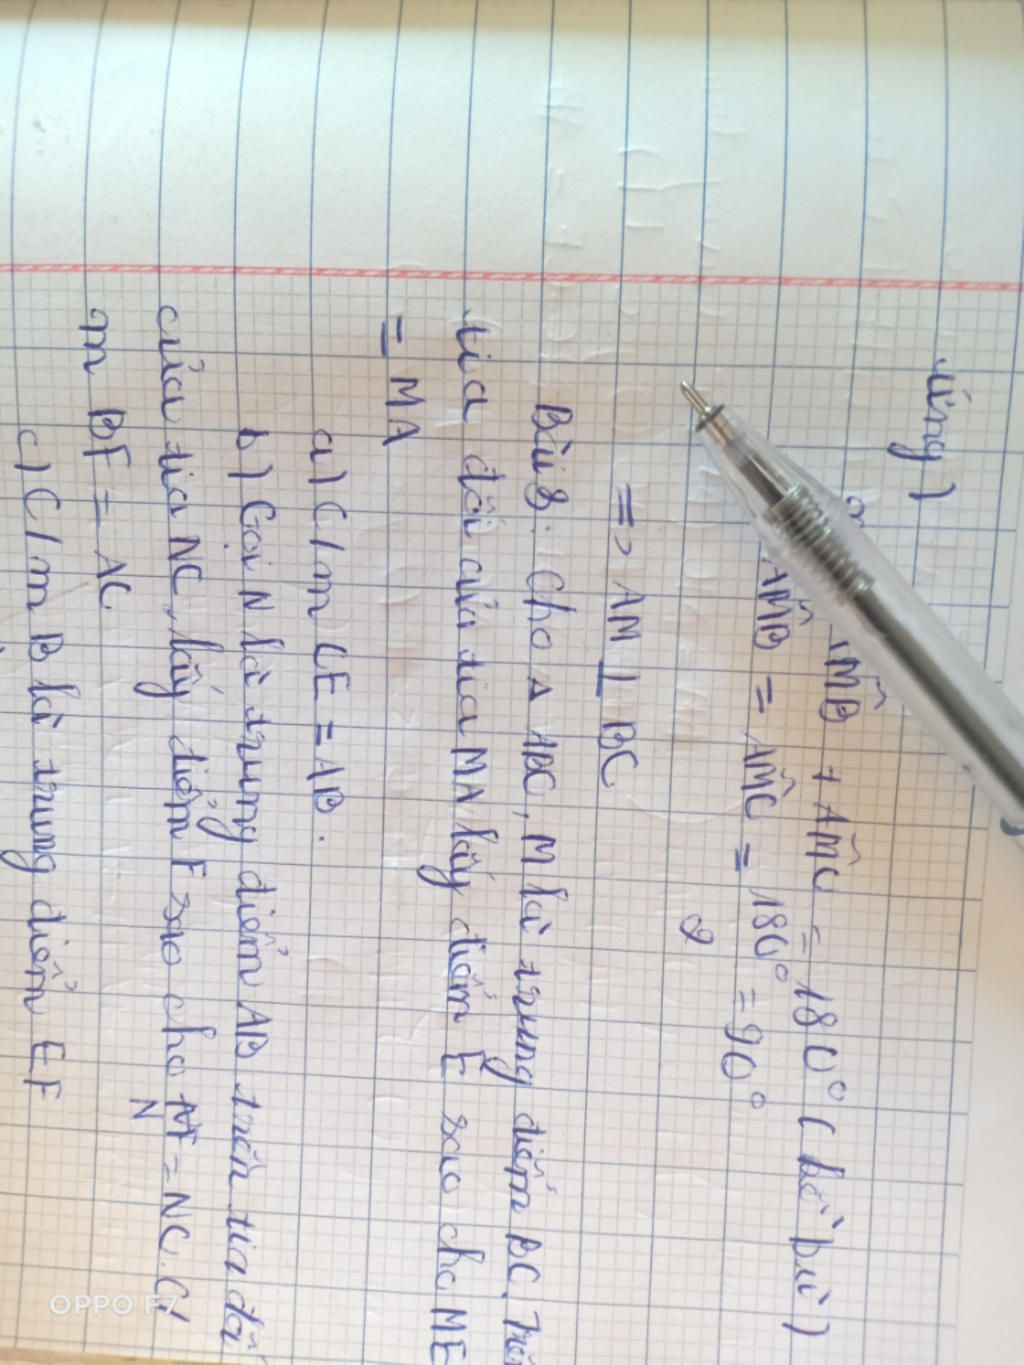 ứng)
MB + AMC = 180° (kề bù)
AMB = AMC = 180° = 90°
2
=> AM ⊥ BC
Bài 8: Cho Δ ABC, M là trung điểm BC. Trên
tia đối của tia MA lấy điểm E sao cho ME
= MA
a) C/m CE = AB.
b) Gọi N là trung điểm AB trên tia đối
của tia NC, lấy điểm F sao cho NF = NC. C/
N
m BF = AC
c) C/m B là trung điểm EF
OPPO F7